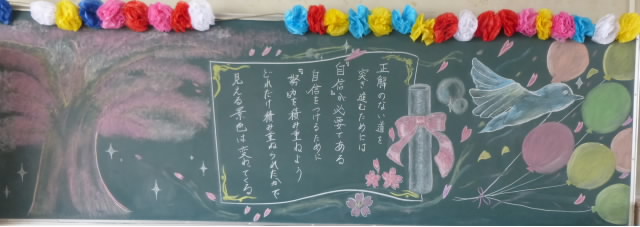 正解のない道を
突き進むためには
"自信"が必要である
自信をつけるために
"努力"を積み重ねよう
どれだけ積み重ねられたかで
見える景色は変わってくる